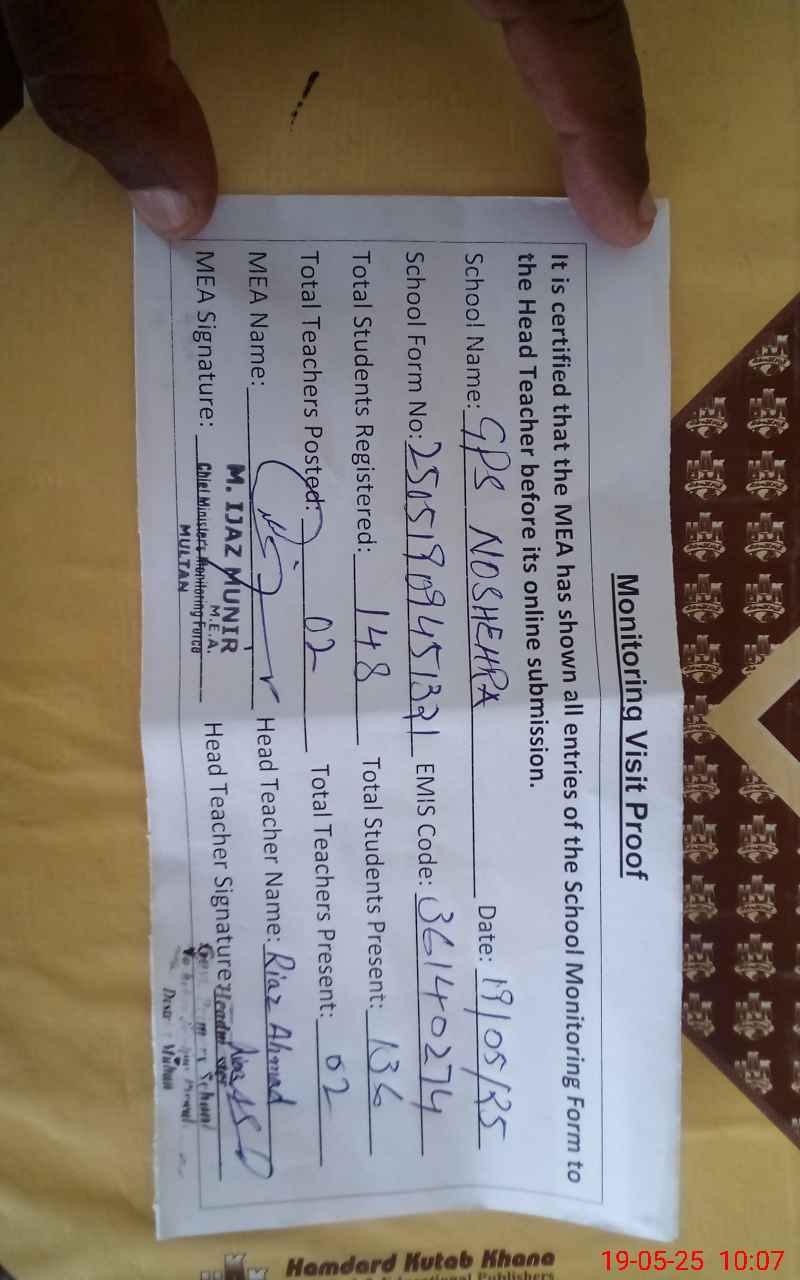 Monitoring Visit Proof
It is certified that the MEA has shown all entries of the School Monitoring Form to
the Head Teacher before its online submission.
School Name: GPS NOSHEHRA Date: 19/05/25
School Form No: 25051909451321 EMIS Code: 36140274
Total Students Registered: 148 Total Students Present: 136
Total Teachers Posted: 02 Total Teachers Present: 02
MEA Name: Head Teacher Name: Riaz Ahmad
M. IJAZ MUNIR
M.E.A.
MEA Signature: Chief Minister's Monitoring Force Head Teacher Signature:
MULTAN
Hamdard Kutab Khana
19-05-25 10:07